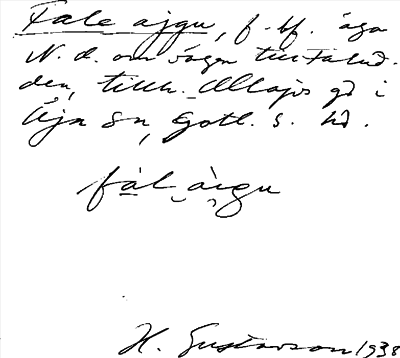 Fale ajgu, f. bf. åga
N. d. om vägen till Falud.
den, tillh. Ollajvs gd i
Öja sn, Gotl. s. hd.
fàl‿àigu
H. Gustavson 1938